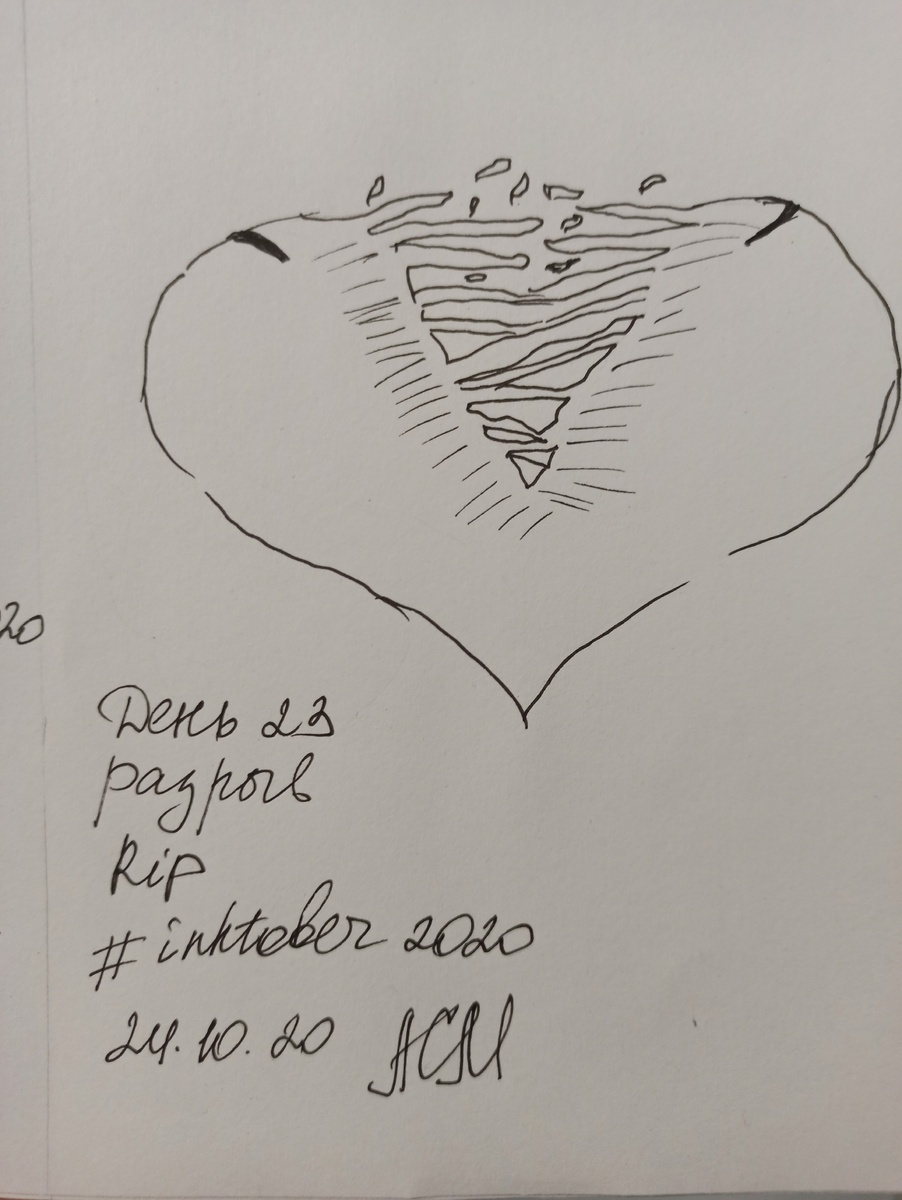 20
День 23
разрыв
Rip
#inktober 2020
24.10.20